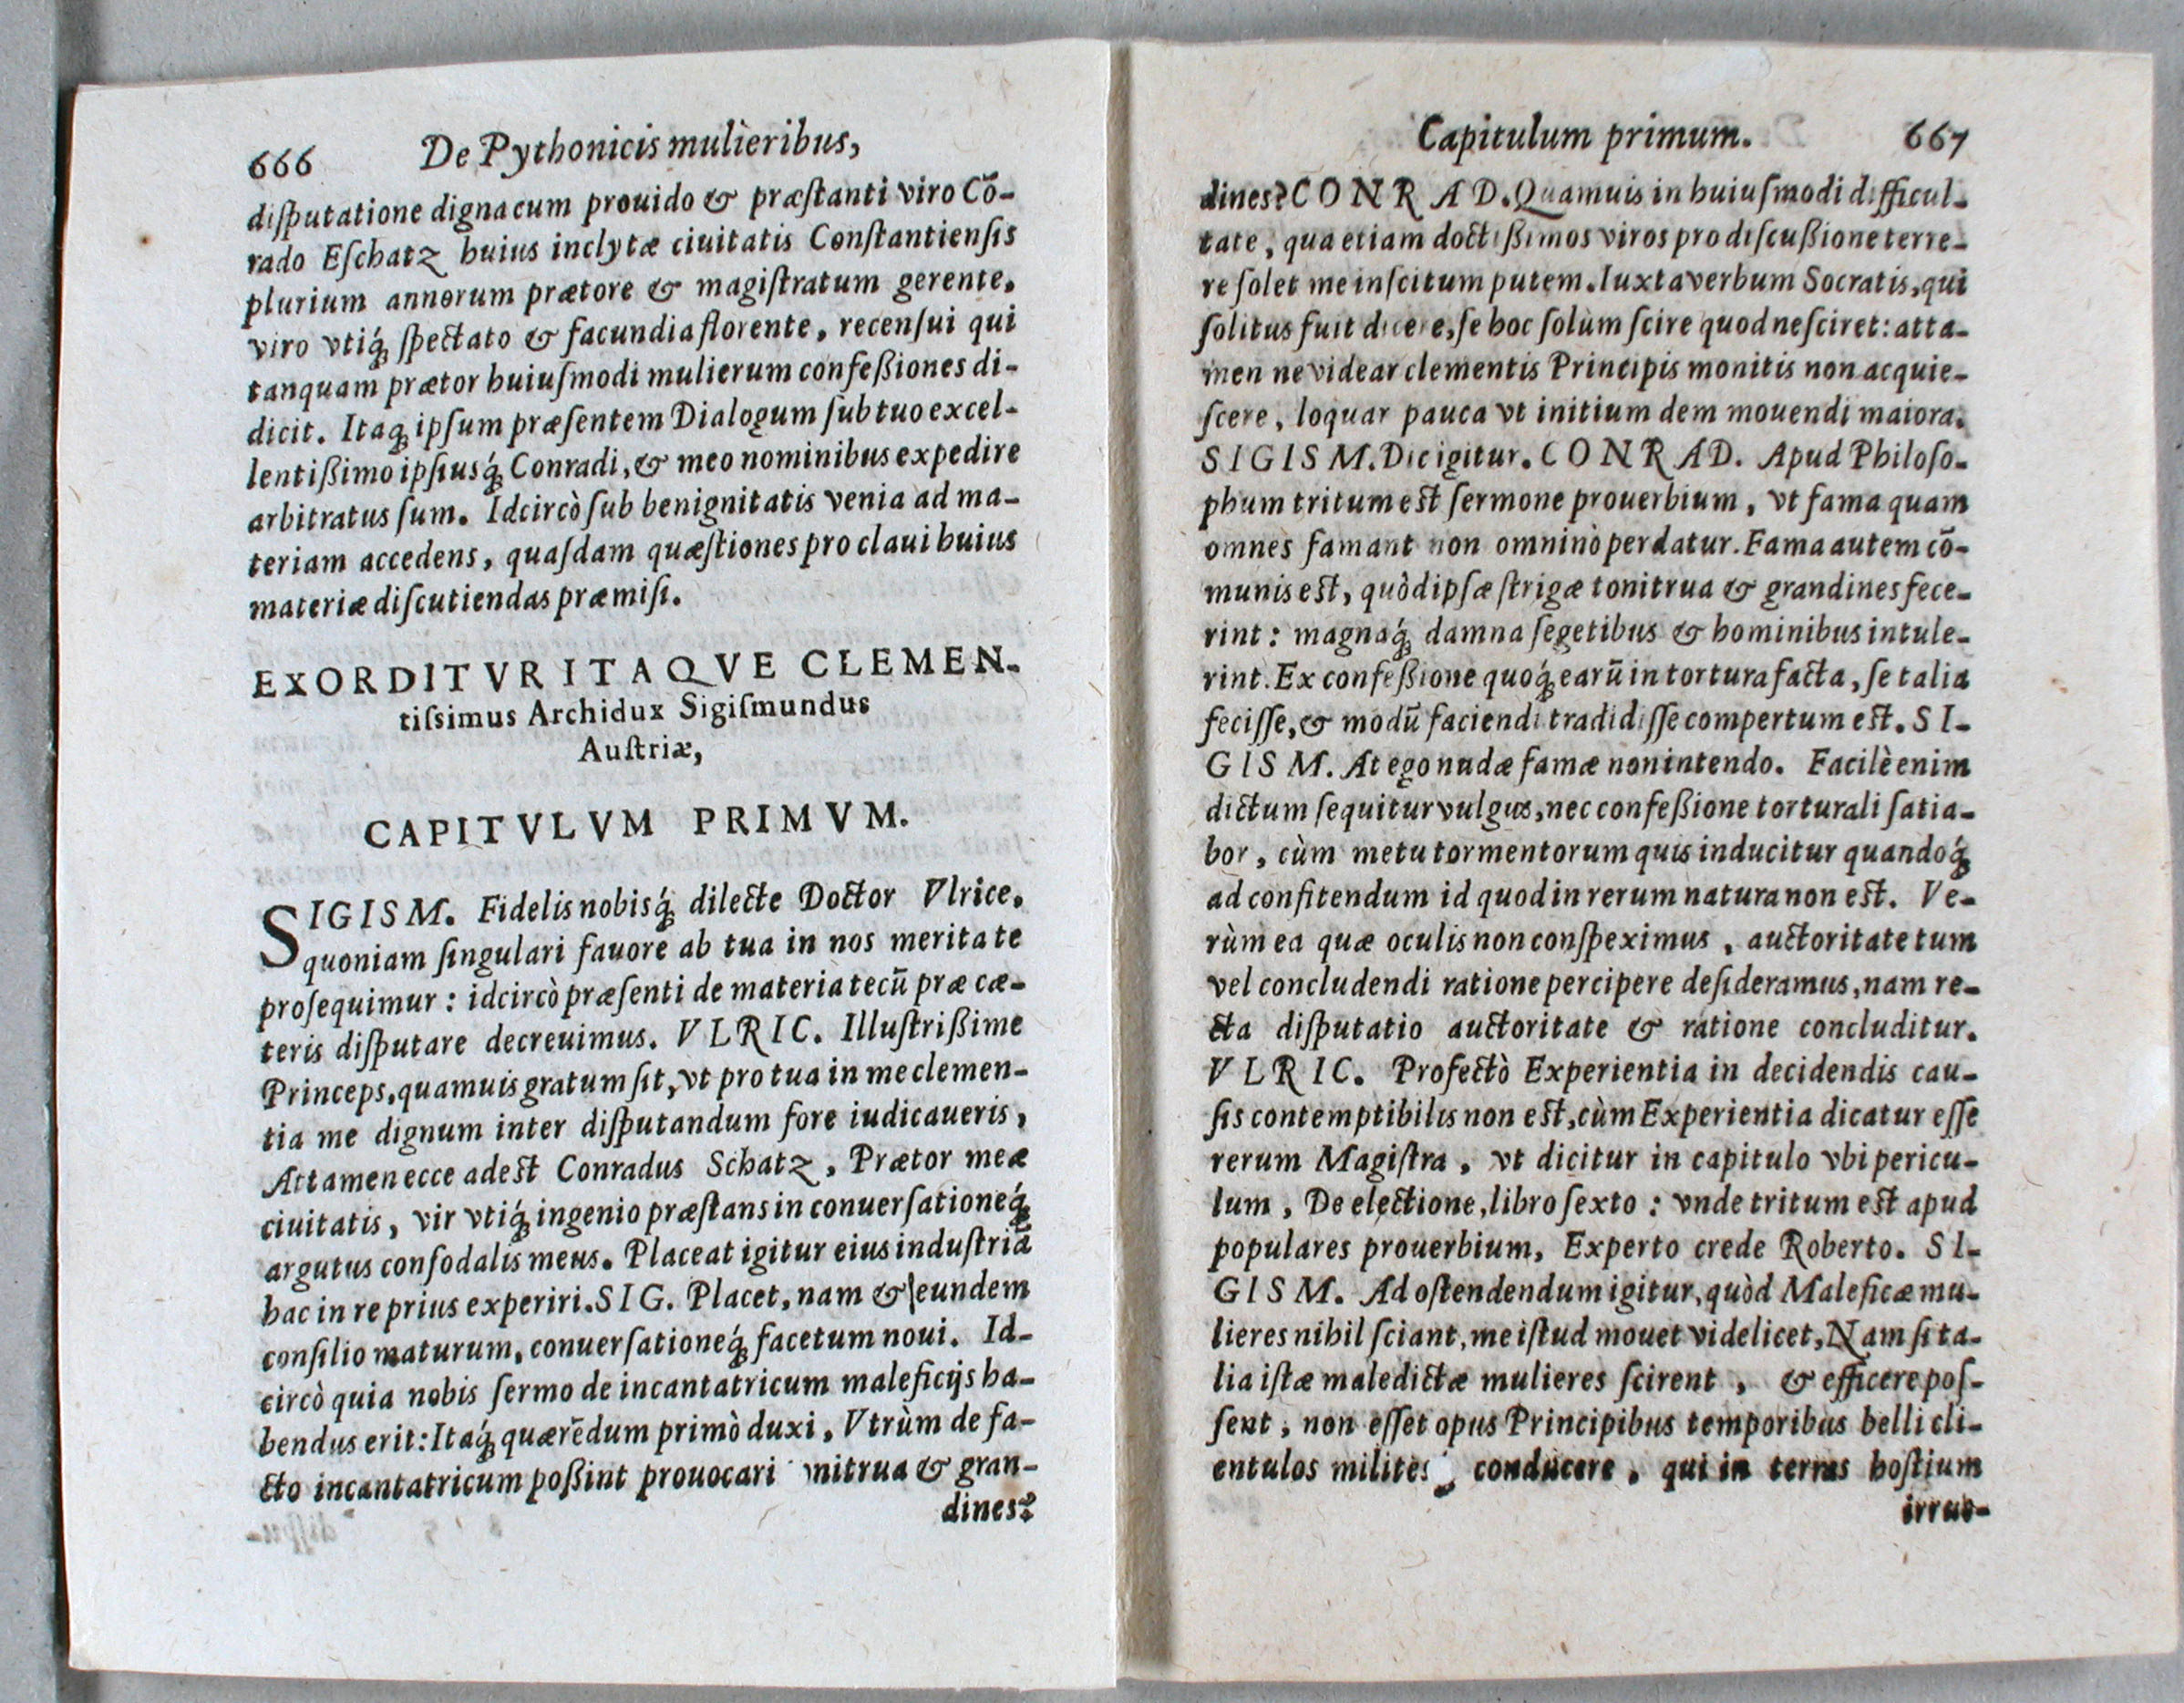 666 De Pythonicis mulieribus,
diſputatione digna cum prouido & præſtanti viro Cõ-
rado Eſchatz huius inclytæ ciuitatis Conſtantienſis
plurium annorum prætore & magiſtratum gerente,
viro vtiq́; ſpectato & facundia florente, recenſui qui
tanquam prætor huiuſmodi mulierum confeßiones di-
dicit. Itaq; ipſum præſentem Dialogum ſub tuo excel-
lentißimo ipſiusq́; Conradi, & meo nominibus expedire
arbitratus ſum. Idcircò ſub benignitatis venia ad ma-
teriam accedens, quaſdam quæſtiones pro claui huius
materiæ diſcutiendas præmiſi.
EXORDITVR ITAQVE CLEMEN-
tiſsimus Archidux Sigiſmundus
Auſtriæ,
CAPITVLVM PRIMVM.
SIGISM. Fidelis nobisq́; dilecte Doctor Vlrice,
quoniam ſingulari fauore ab tua in nos merita te
proſequimur: idcircò præſenti de materia tecũ præ cæ-
teris diſputare decreuimus. VLRIC. Illuſtrißime
Princeps, quamuis gratum ſit, vt pro tua in me clemen-
tia me dignum inter diſputandum fore iudicaueris,
Attamen ecce adest Conradus Schatz, Prætor meæ
ciuitatis, vir vtiq́; ingenio præſtans in conuerſationeq́;
argutus conſodalis meus. Placeat igitur eius induſtriã
hac in re prius experiri. SIG. Placet, nam & eundem
conſilio maturum, conuerſationeq́; facetum noui. Id-
circò quia nobis ſermo de incantatricum maleficijs ha-
bendus erit: Itaq́; quærẽdum primò duxi, Vtrùm de fa-
cto incantatricum poßint prouocari nitrua & gran-
dines?
Capitulum primum. 667
dines? CONRAD. Quamuis in huiuſmodi difficul-
tate, qua etiam doctißimos viros pro diſcußione terre-
re ſolet me inſcitum putem. Iuxta verbum Socratis, qui
ſolitus fuit dicere, ſe hoc ſolùm ſcire quod neſciret: atta-
men ne videar clementis Principis monitis non acquie-
ſcere, loquar pauca vt initium dem mouendi maiora.
SIGISM. Dic igitur. CONRAD. Apud Philoſo-
phum tritum est ſermone prouerbium, vt fama quam
omnes famant non omninò perdatur. Fama autem cõ-
munis est, quòd ipſæ ſtrigæ tonitrua & grandines fece-
rint: magnaq́; damna ſegetibus & hominibus intule-
rint. Ex confeßione quoq́; earũ in tortura facta, ſe talia
feciſſe, & modũ faciendi tradidiſſe compertum est. SI-
GISM. At ego nudæ famæ non intendo. Facilè enim
dictum ſequitur vulgus, nec confeßione torturali ſatia-
bor, cùm metu tormentorum quis inducitur quandoq́;
ad confitendum id quod in rerum natura non est. Ve-
rùm ea quæ oculis non conſpeximus, auctoritate tum
vel concludendi ratione percipere deſideramus, nam re-
cta diſputatio auctoritate & ratione concluditur.
VLRIC. Profectò Experientia in decidendis cau-
ſis contemptibilis non est, cùm Experientia dicatur eſſe
rerum Magiſtra, vt dicitur in capitulo vbi pericu-
lum, De electione, libro ſexto: vnde tritum est apud
populares prouerbium, Experto crede Roberto. SI-
GISM. Ad oſtendendum igitur, quòd Maleficæ mu-
lieres nihil ſciant, me iſtud mouet videlicet, Nam ſi ta-
lia iſtæ maledictæ mulieres ſcirent, & efficere poſ-
ſent, non eſſet opus Principibus temporibus belli cli-
entulos milites conducere, qui in terras hoſtium
irrue-